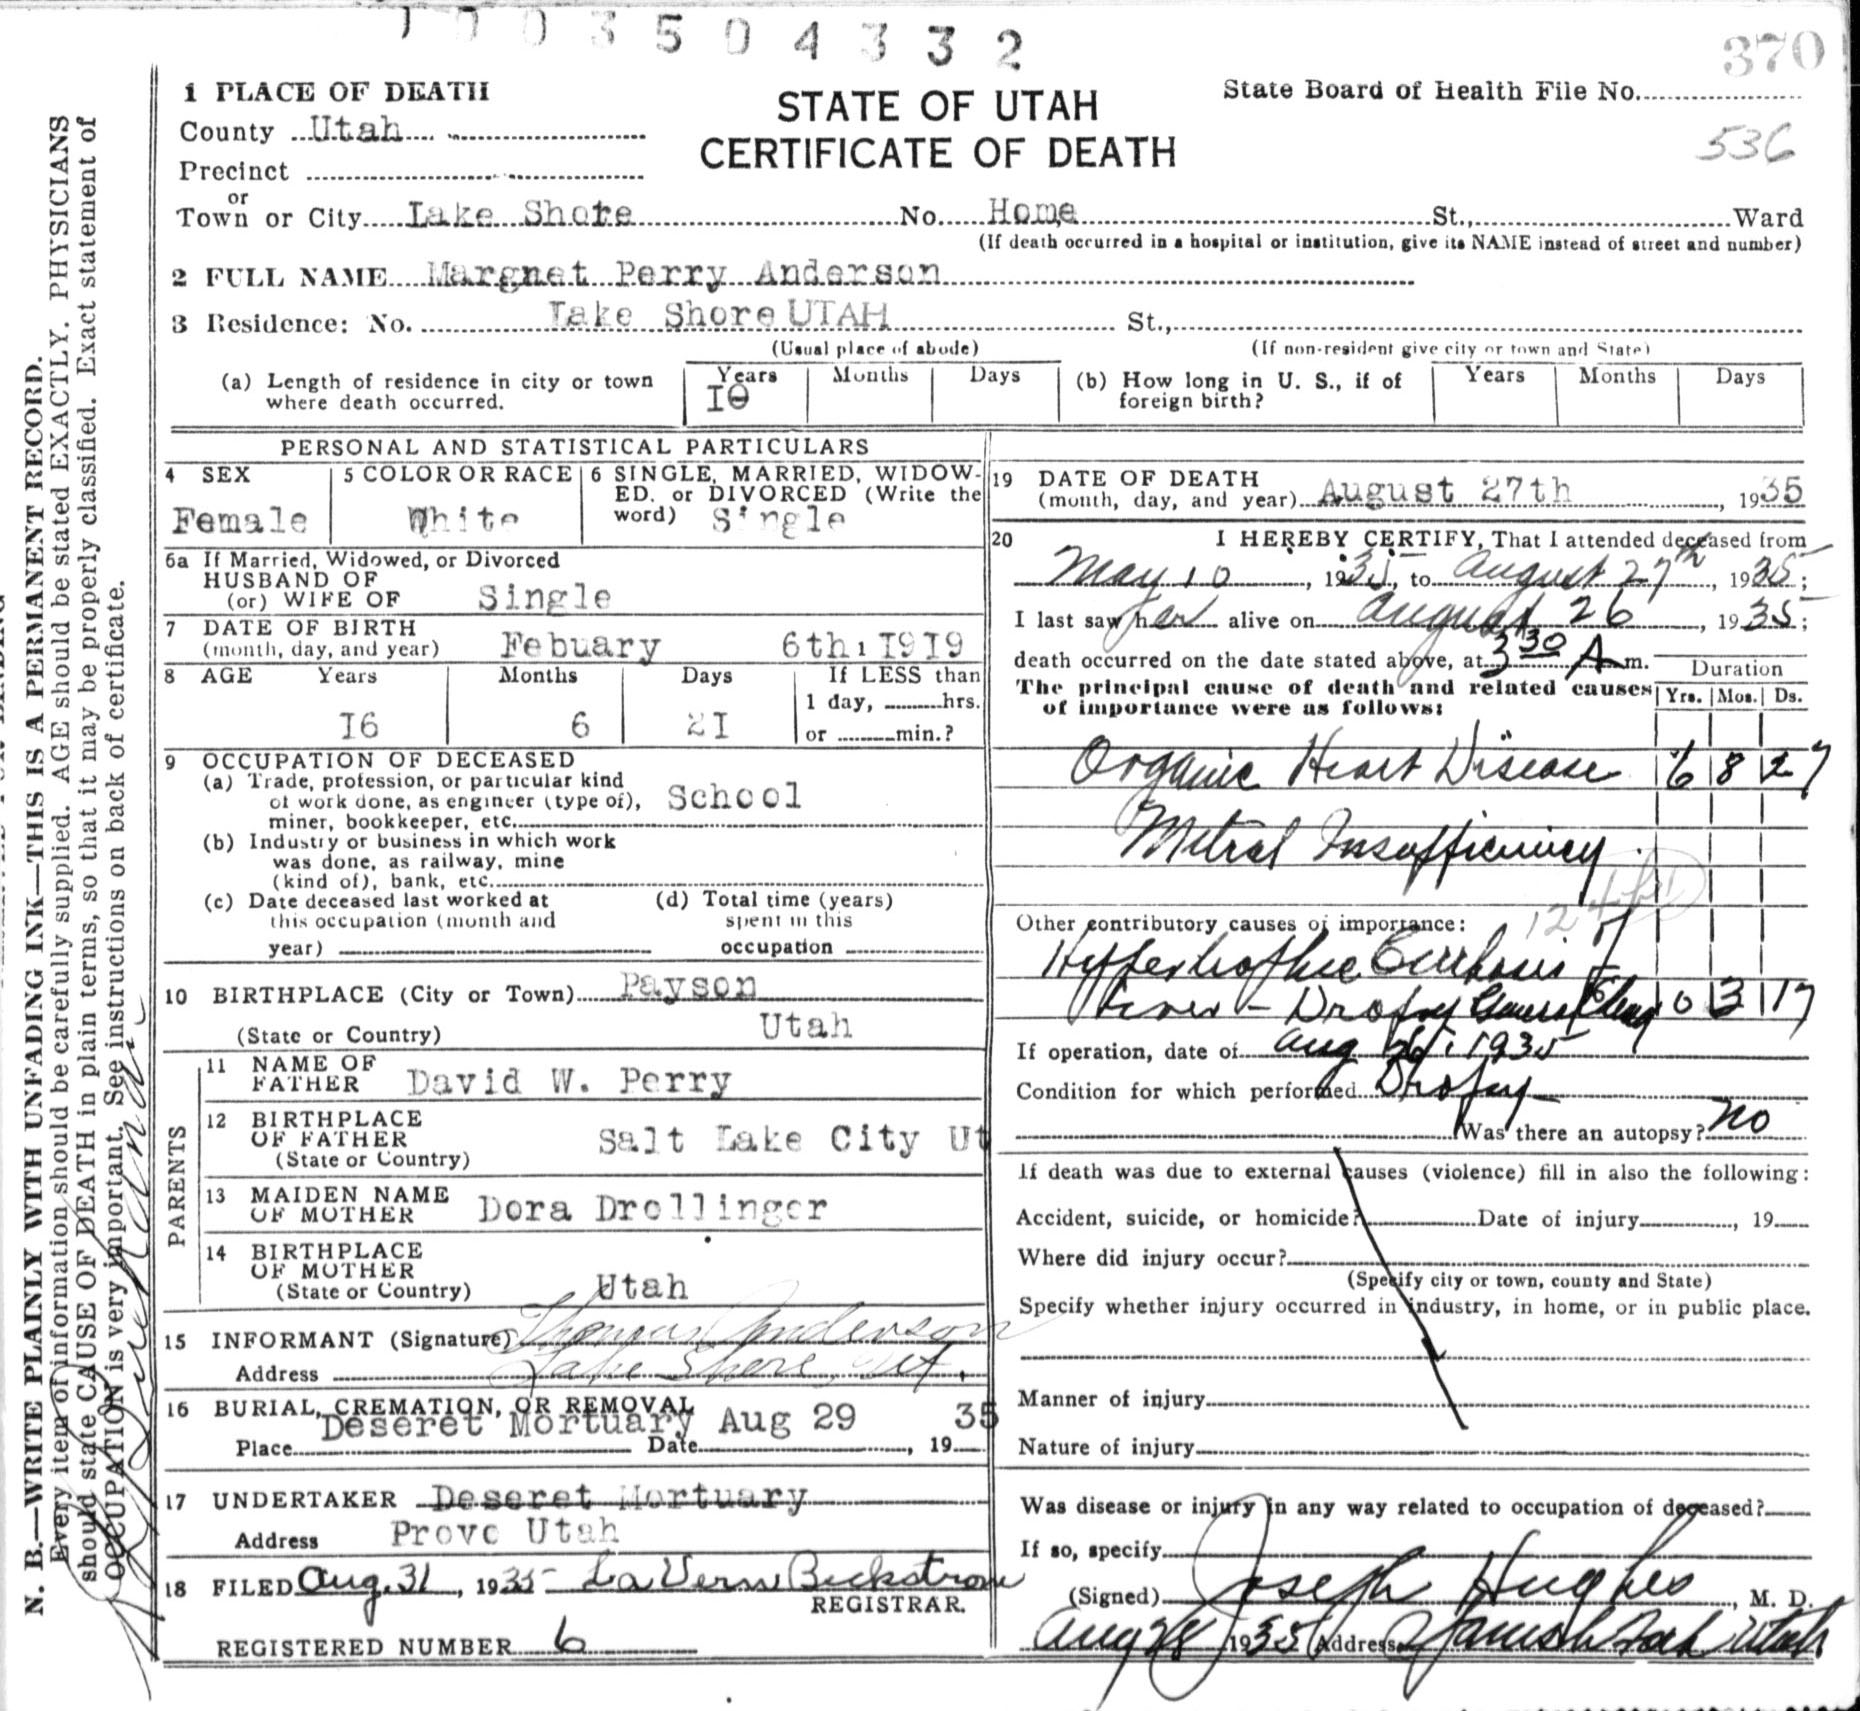 1 7 0 3 5 0 4 3 3 2
370
1 PLACE OF DEATH
STATE OF UTAH
CERTIFICATE OF DEATH
State Board of Health File No.
536
County Utah
Precinct
or
Town or City Lake Shore No. Home St., Ward
(If death occurred in a hospital or institution, give its NAME instead of street and number)
2 FULL NAME Margnet Perry Anderson
3 Residence: No. Lake Shore UTAH St.,
(Usual place of abode) (If non-resident give city or town and State)
(a) Length of residence in city or town where death occurred. Years I0 Months Days (b) How long in U. S., if of foreign birth? Years Months Days
PERSONAL AND STATISTICAL PARTICULARS
4 SEX Female
5 COLOR OR RACE White
6 SINGLE, MARRIED, WIDOW-
ED. or DIVORCED (Write the
word) Single
6a If Married, Widowed, or Divorced
HUSBAND OF
(or) WIFE OF Single
7 DATE OF BIRTH
(month, day, and year) Febuary 6th, I9I9
8 AGE Years Months Days If LESS than
1 day, hrs.
I6 6 2I or min.?
9 OCCUPATION OF DECEASED
(a) Trade, profession, or particular kind
of work done, as engineer (type of), School
miner, bookkeeper, etc.
(b) Industry or business in which work
was done, as railway, mine
(kind of), bank, etc.
(c) Date deceased last worked at
this occupation (month and
year)
(d) Total time (years)
spent in this
occupation
10 BIRTHPLACE (City or Town) Payson
(State or Country) Utah
PARENTS
11 NAME OF
FATHER David W. Perry
12 BIRTHPLACE
OF FATHER Salt Lake City Ut
(State or Country)
13 MAIDEN NAME
OF MOTHER Dora Drollinger
14 BIRTHPLACE
OF MOTHER
(State or Country) Utah
15 INFORMANT (Signature) Thomas Anderson
Address Lake Shore, Ut.
16 BURIAL, CREMATION, OR REMOVAL
Deseret Mortuary Aug 29 35
Place Date , 19
17 UNDERTAKER Deseret Mortuary
Address Provo Utah
18 FILED Aug. 31, 1935 La Vern Beckstrom
REGISTRAR.
REGISTERED NUMBER 6
19 DATE OF DEATH
(month, day, and year) August 27th, 1935
20 I HEREBY CERTIFY, That I attended deceased from
May 10, 1935, to August 27th, 1935;
I last saw her alive on August 26, 1935;
death occurred on the date stated above, at 3 30 A m.
Duration
The principal cause of death and related causes
of importance were as follows:
Yrs. Mos. Ds.
Organic Heart Disease 6 8 27
Mitral Insufficiency
Other contributory causes of importance:
Hypertrophic Cirrhosis of
Liver - Dropsy 0 3 17
If operation, date of Aug 26, 1935
Condition for which performed Dropsy
Was there an autopsy? no
If death was due to external causes (violence) fill in also the following:
Accident, suicide, or homicide? Date of injury , 19
Where did injury occur?
(Specify city or town, county and State)
Specify whether injury occurred in industry, in home, or in public place.
Manner of injury
Nature of injury
Was disease or injury in any way related to occupation of deceased?
If so, specify
(Signed) Joseph Hughes, M. D.
Aug 28 1935 Address Spanish Fork Utah
N. B.—WRITE PLAINLY WITH UNFADING INK—THIS IS A PERMANENT RECORD.
Every item of information should be carefully supplied. AGE should be stated EXACTLY. PHYSICIANS
should state CAUSE OF DEATH in plain terms, so that it may be properly classified. Exact statement of
OCCUPATION is very important. See instructions on back of certificate.